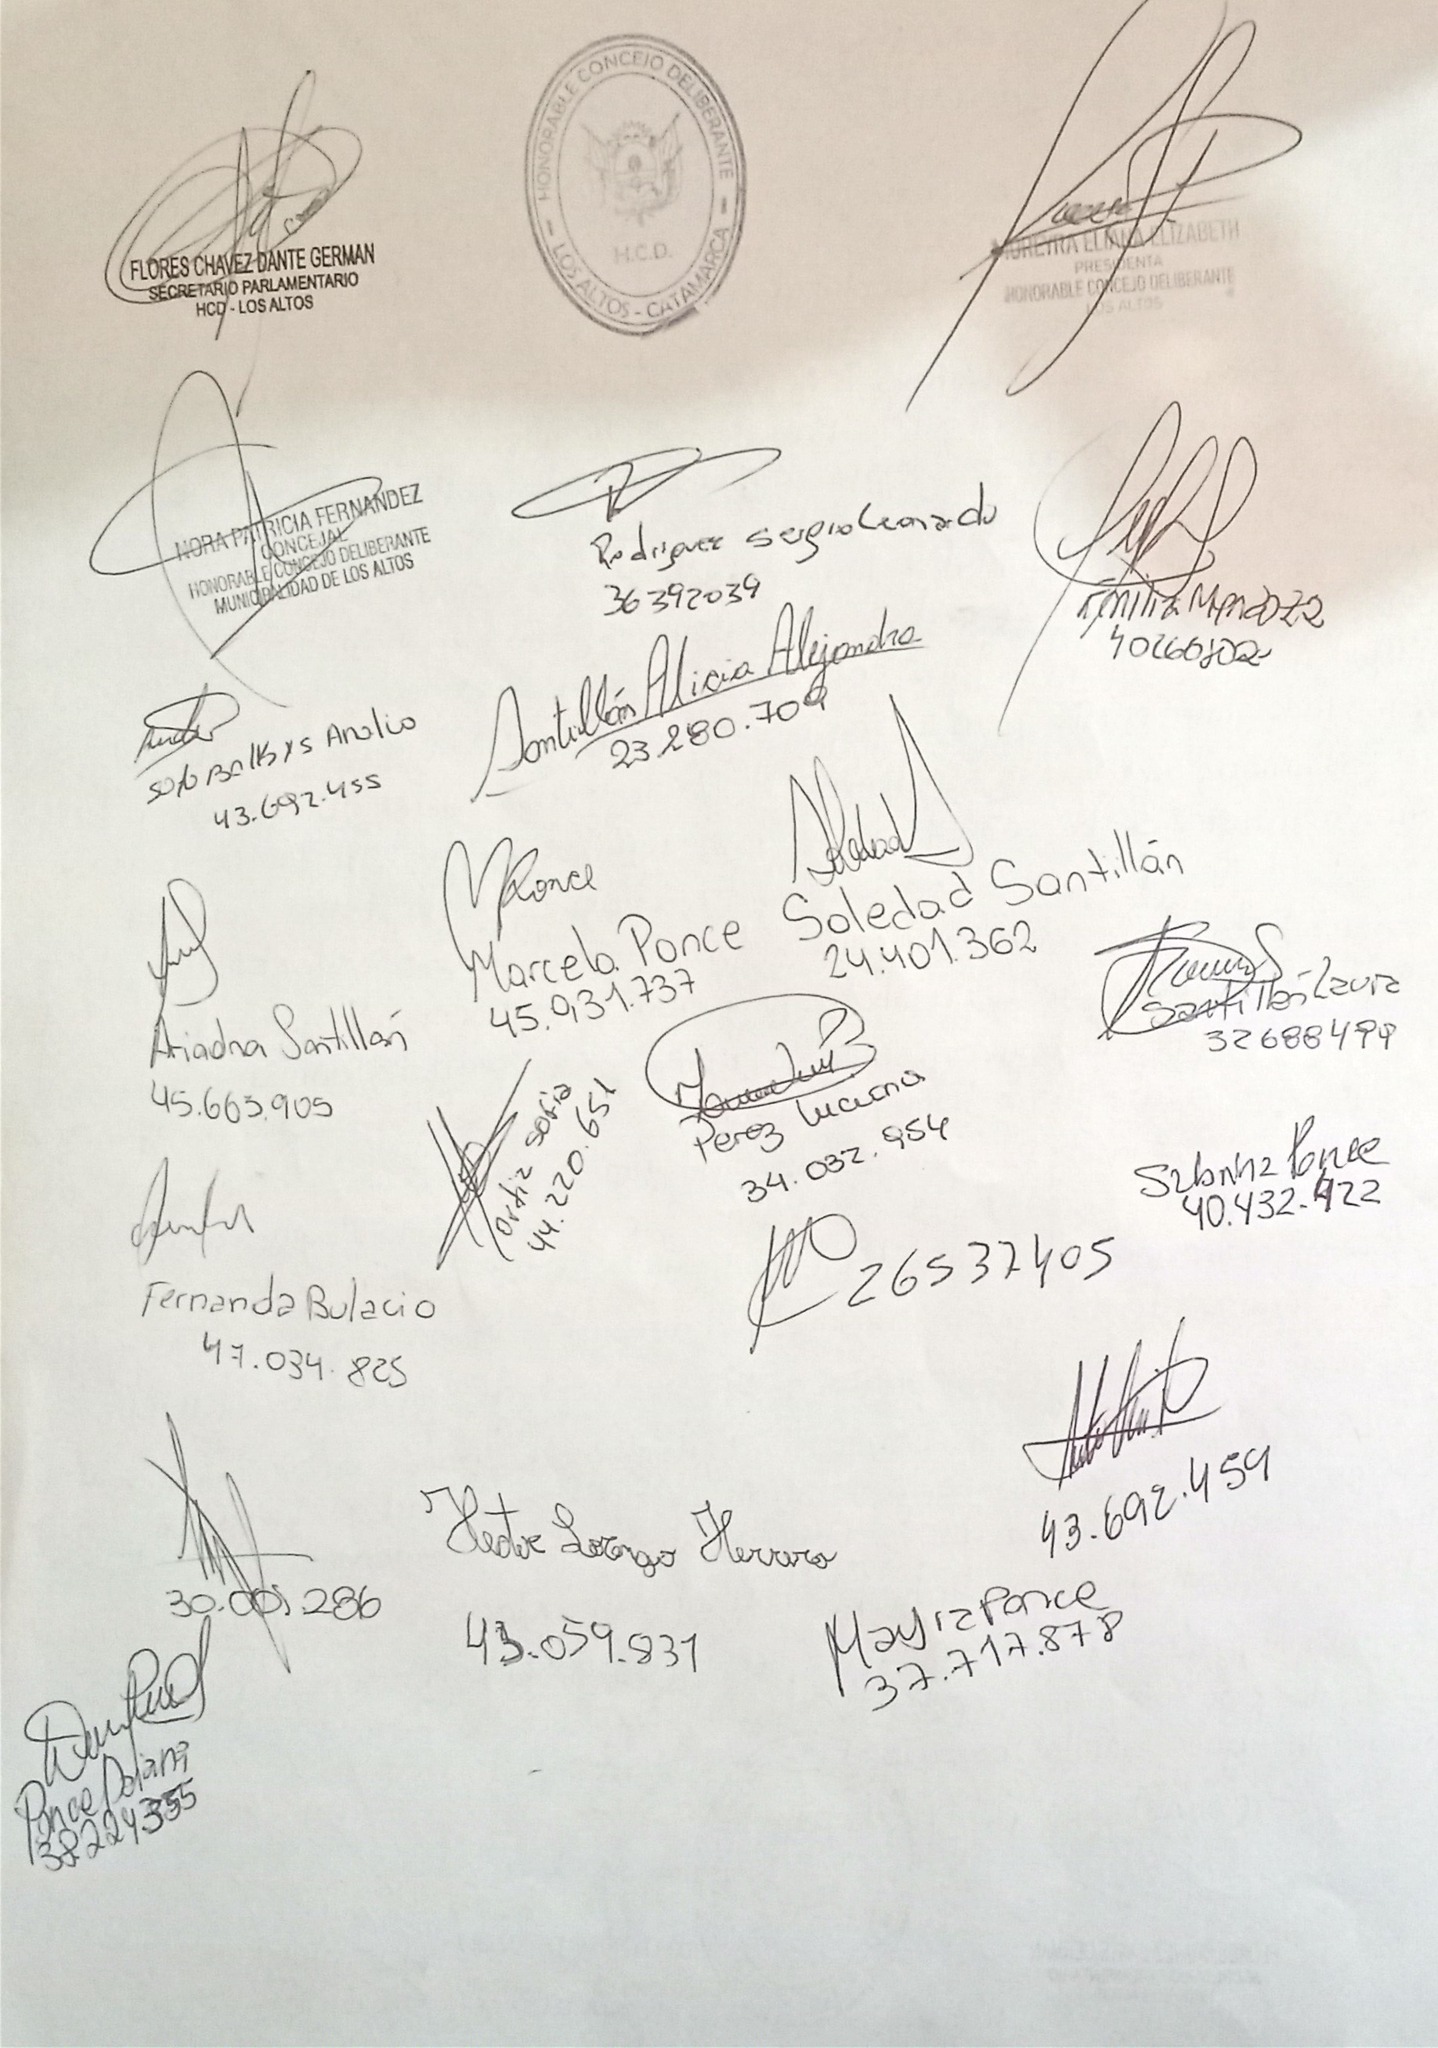 FLORES CHAVEZ DANTE GERMAN
SECRETARIO PARLAMENTARIO
HCD - LOS ALTOS
HONORABLE CONCEJO DELIBERANTE
H.C.D.
LOS ALTOS - CATAMARCA
MOREYRA ELIANA ELIZABETH
PRESIDENTA
HONORABLE CONCEJO DELIBERANTE
LOS ALTOS
NORA PATRICIA FERNANDEZ
CONCEJAL
HONORABLE CONCEJO DELIBERANTE
MUNICIPALIDAD DE LOS ALTOS
Rodriguez Sergio Leonardo
36392039
Emilia Mendoza
40260802
Soto Analia
43.692.455
Santillán Alicia Alejandra
23.280.709
MPonce
Marcela Ponce
45.931.737
Soledad
Soledad Santillán
24.401.362
Santillán Laura
32688499
Ariadna Santillán
45.663.905
Ortiz Sofia
44.220.651
Perez Luciana
34.032.954
Sabrina Ponce
40.432.422
Fernanda Bulacio
47.034.825
26537405
43.692.459
30.001.286
Hector Lorenzo Herrera
43.059.831
Mayra Ponce
37.717.878
Ponce Daiana
38224355